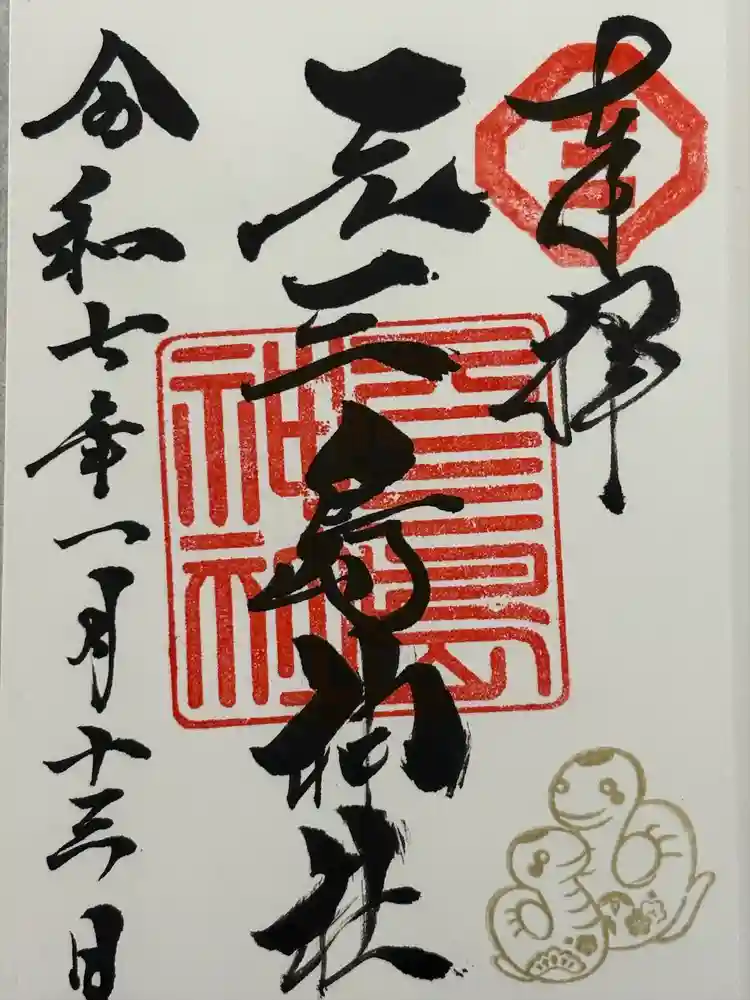 奉拝
三
元三島神社
元三島
神社
令和七年一月十三日